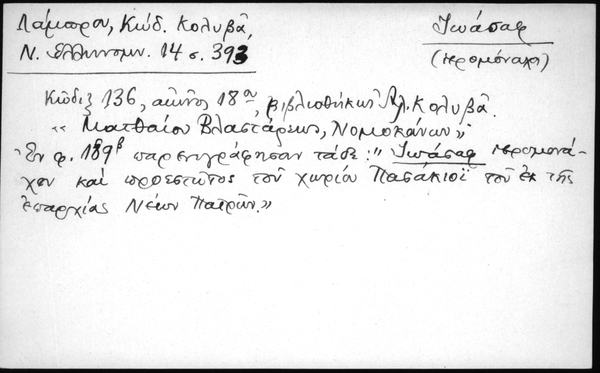 Λάμπρου, Κώδ. Κολυβᾶ,
Ν. Ἑλληνομν. 14 σ. 393
Ἰωάσαφ
(ἱερομόναχος)
Κῶδιξ 136, αἰῶνος 18ου, βιβλιοθήκης Ἀλ. Κολυβᾶ.
«Ματθαίου Βλαστάρεως, Νομοκάνων»
Ἐν φ. 189β παρενεγράφησαν τάδε: "Ἰωάσαφ ἱερομονά-
χου καὶ προεστῶτος τοῦ χωρίου Πασάκιοϊ τοῦ ἐκ τῆς
ἐπαρχίας Νέων Πατρῶν."